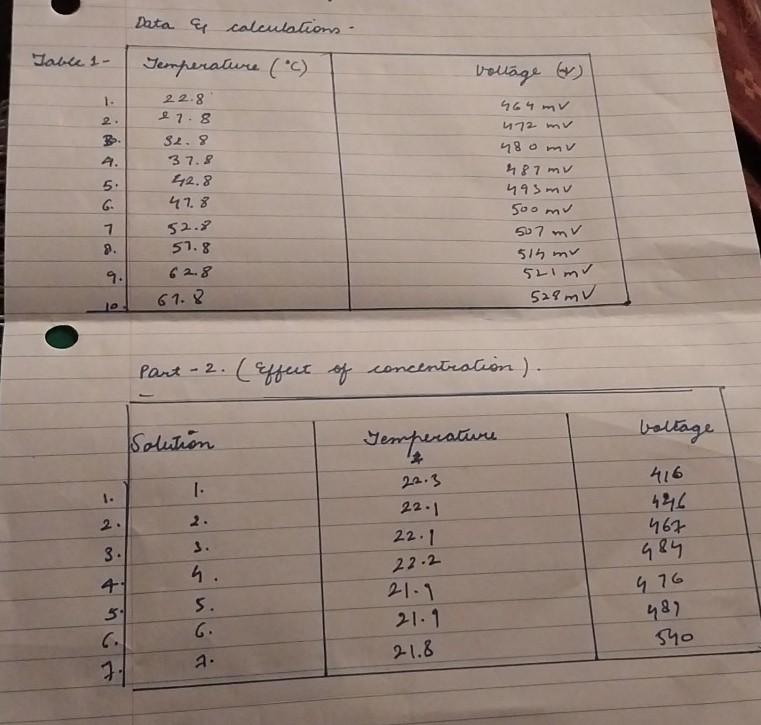 Data & calculations -
Table 1- Temperature (°C) Voltage
1. 22.8 464 mV
2. 27.8 472 mV
3. 32.8 480 mV
4. 37.8 487 mV
5. 42.8 493 mV
6. 47.8 500 mV
7 52.8 507 mV
8. 57.8 514 mV
9. 62.8 521 mV
10. 67.8 528 mV
Part - 2. (Effect of concentration).
Solution Temperature Voltage
1. 1. 22.3 416
2. 2. 22.1
3. 3. 22.1 467
4. 4. 22.2 484
5. 5. 21.9 476
6. 6. 21.9
7. 7. 21.8 540